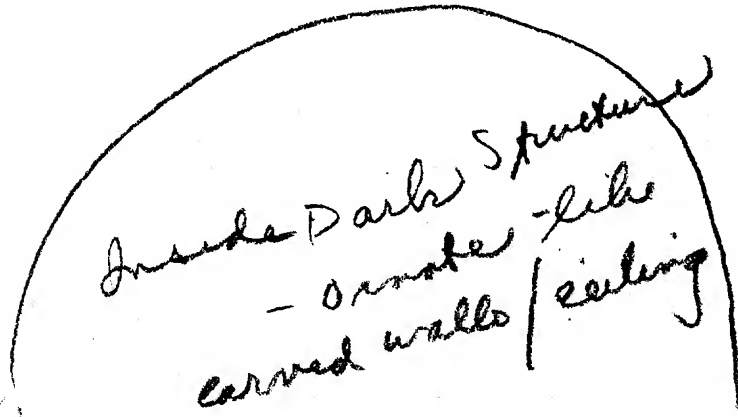 Inside Dark Structure
- Ornate-like
carved walls/ceiling